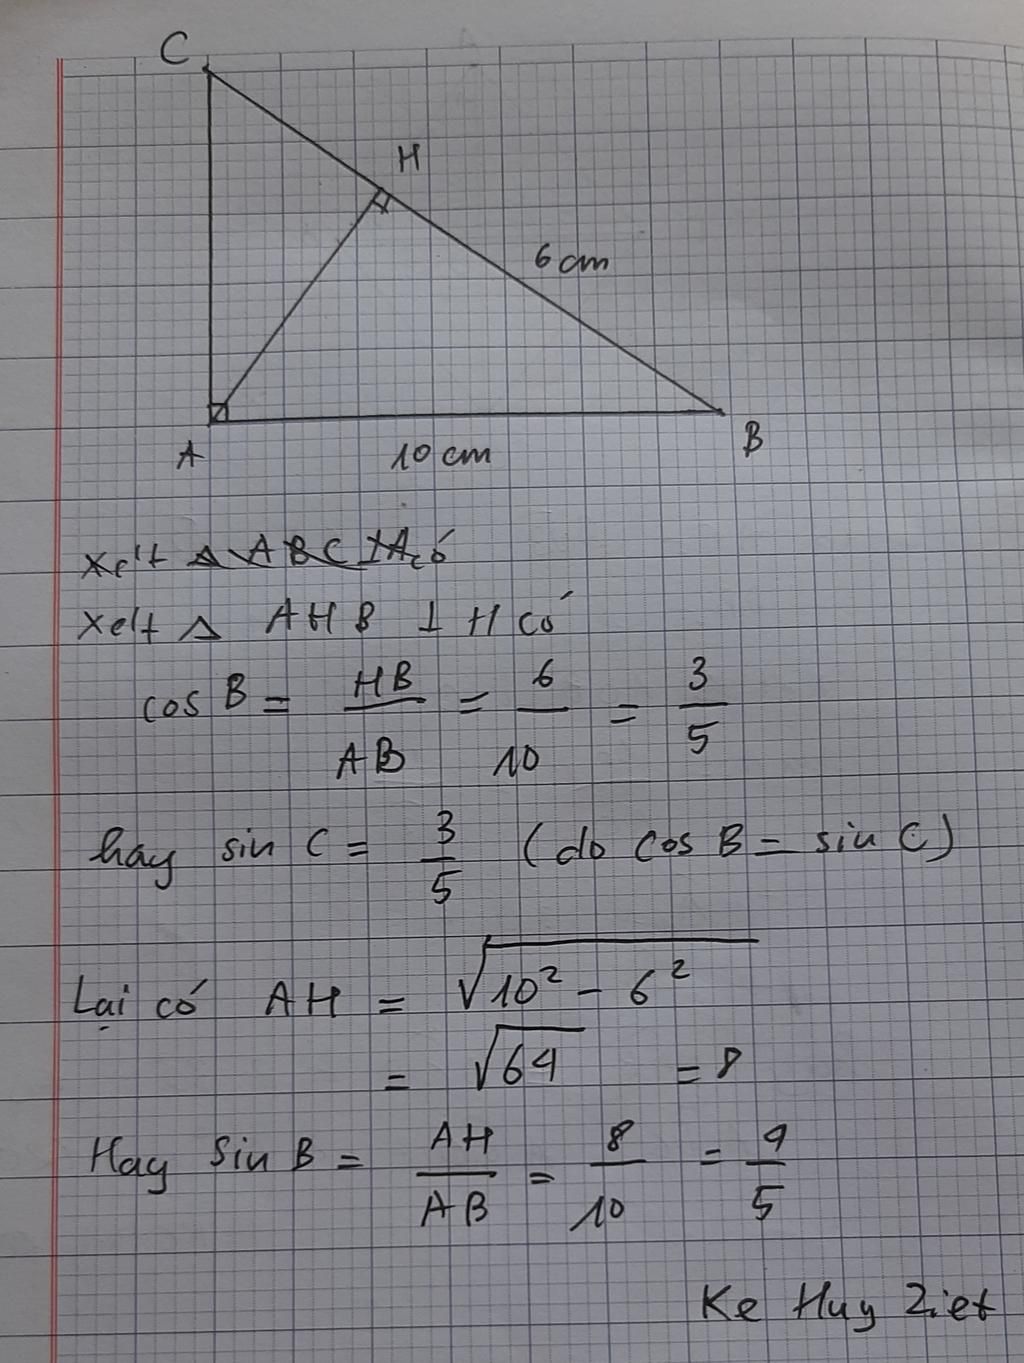 C
H
6 cm
A
10 cm
B
Xelt Δ ABC ⊥ A có
Xelt Δ AHB ⊥ H có
cos B = HB/AB = 6/10 = 3/5
hay sin C = 3/5 (do cos B = sin C)
Lại có AH = √10² - 6²
= √64 = 8
Hay Sin B = AH/AB = 8/10 = 4/5
Ke Huy Ziet